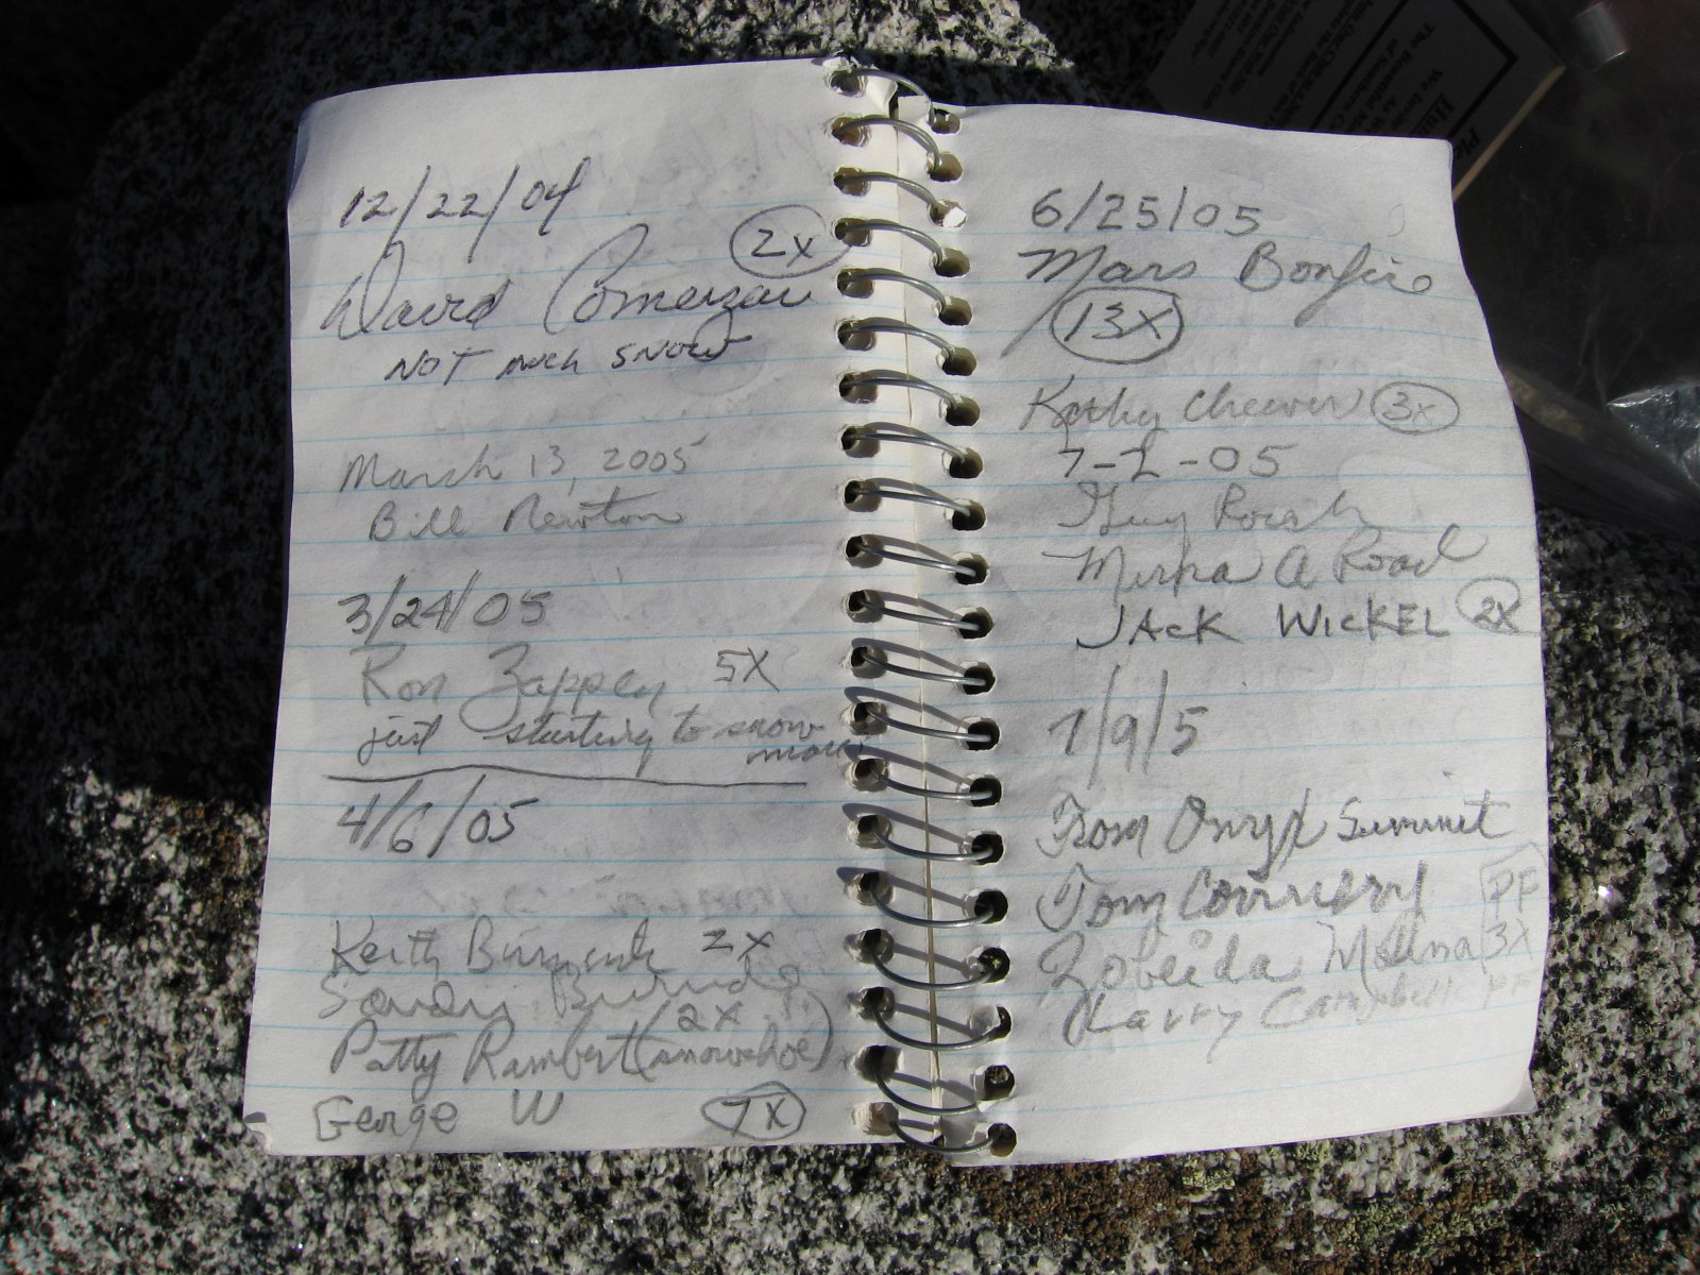 12/22/04
2x
David
NOT much snow
March 13, 2005
Bill Newton
3/24/05
Ron Zappen 5X
just starting to snow
more
4/6/05
Keith 2x
Sandy
2x
Patty Rambert (snowshoe)
George W 7X
6/25/05
Mars Bonfire
13X
Kathy Cheever 3x
7-2-05
Guy
Mirna A Road
JAcK WicKEL 2X
7/9/5
From Onyx Summit
Tom Connery PF
Zobeida Molina 3X
Larry Campbell PF